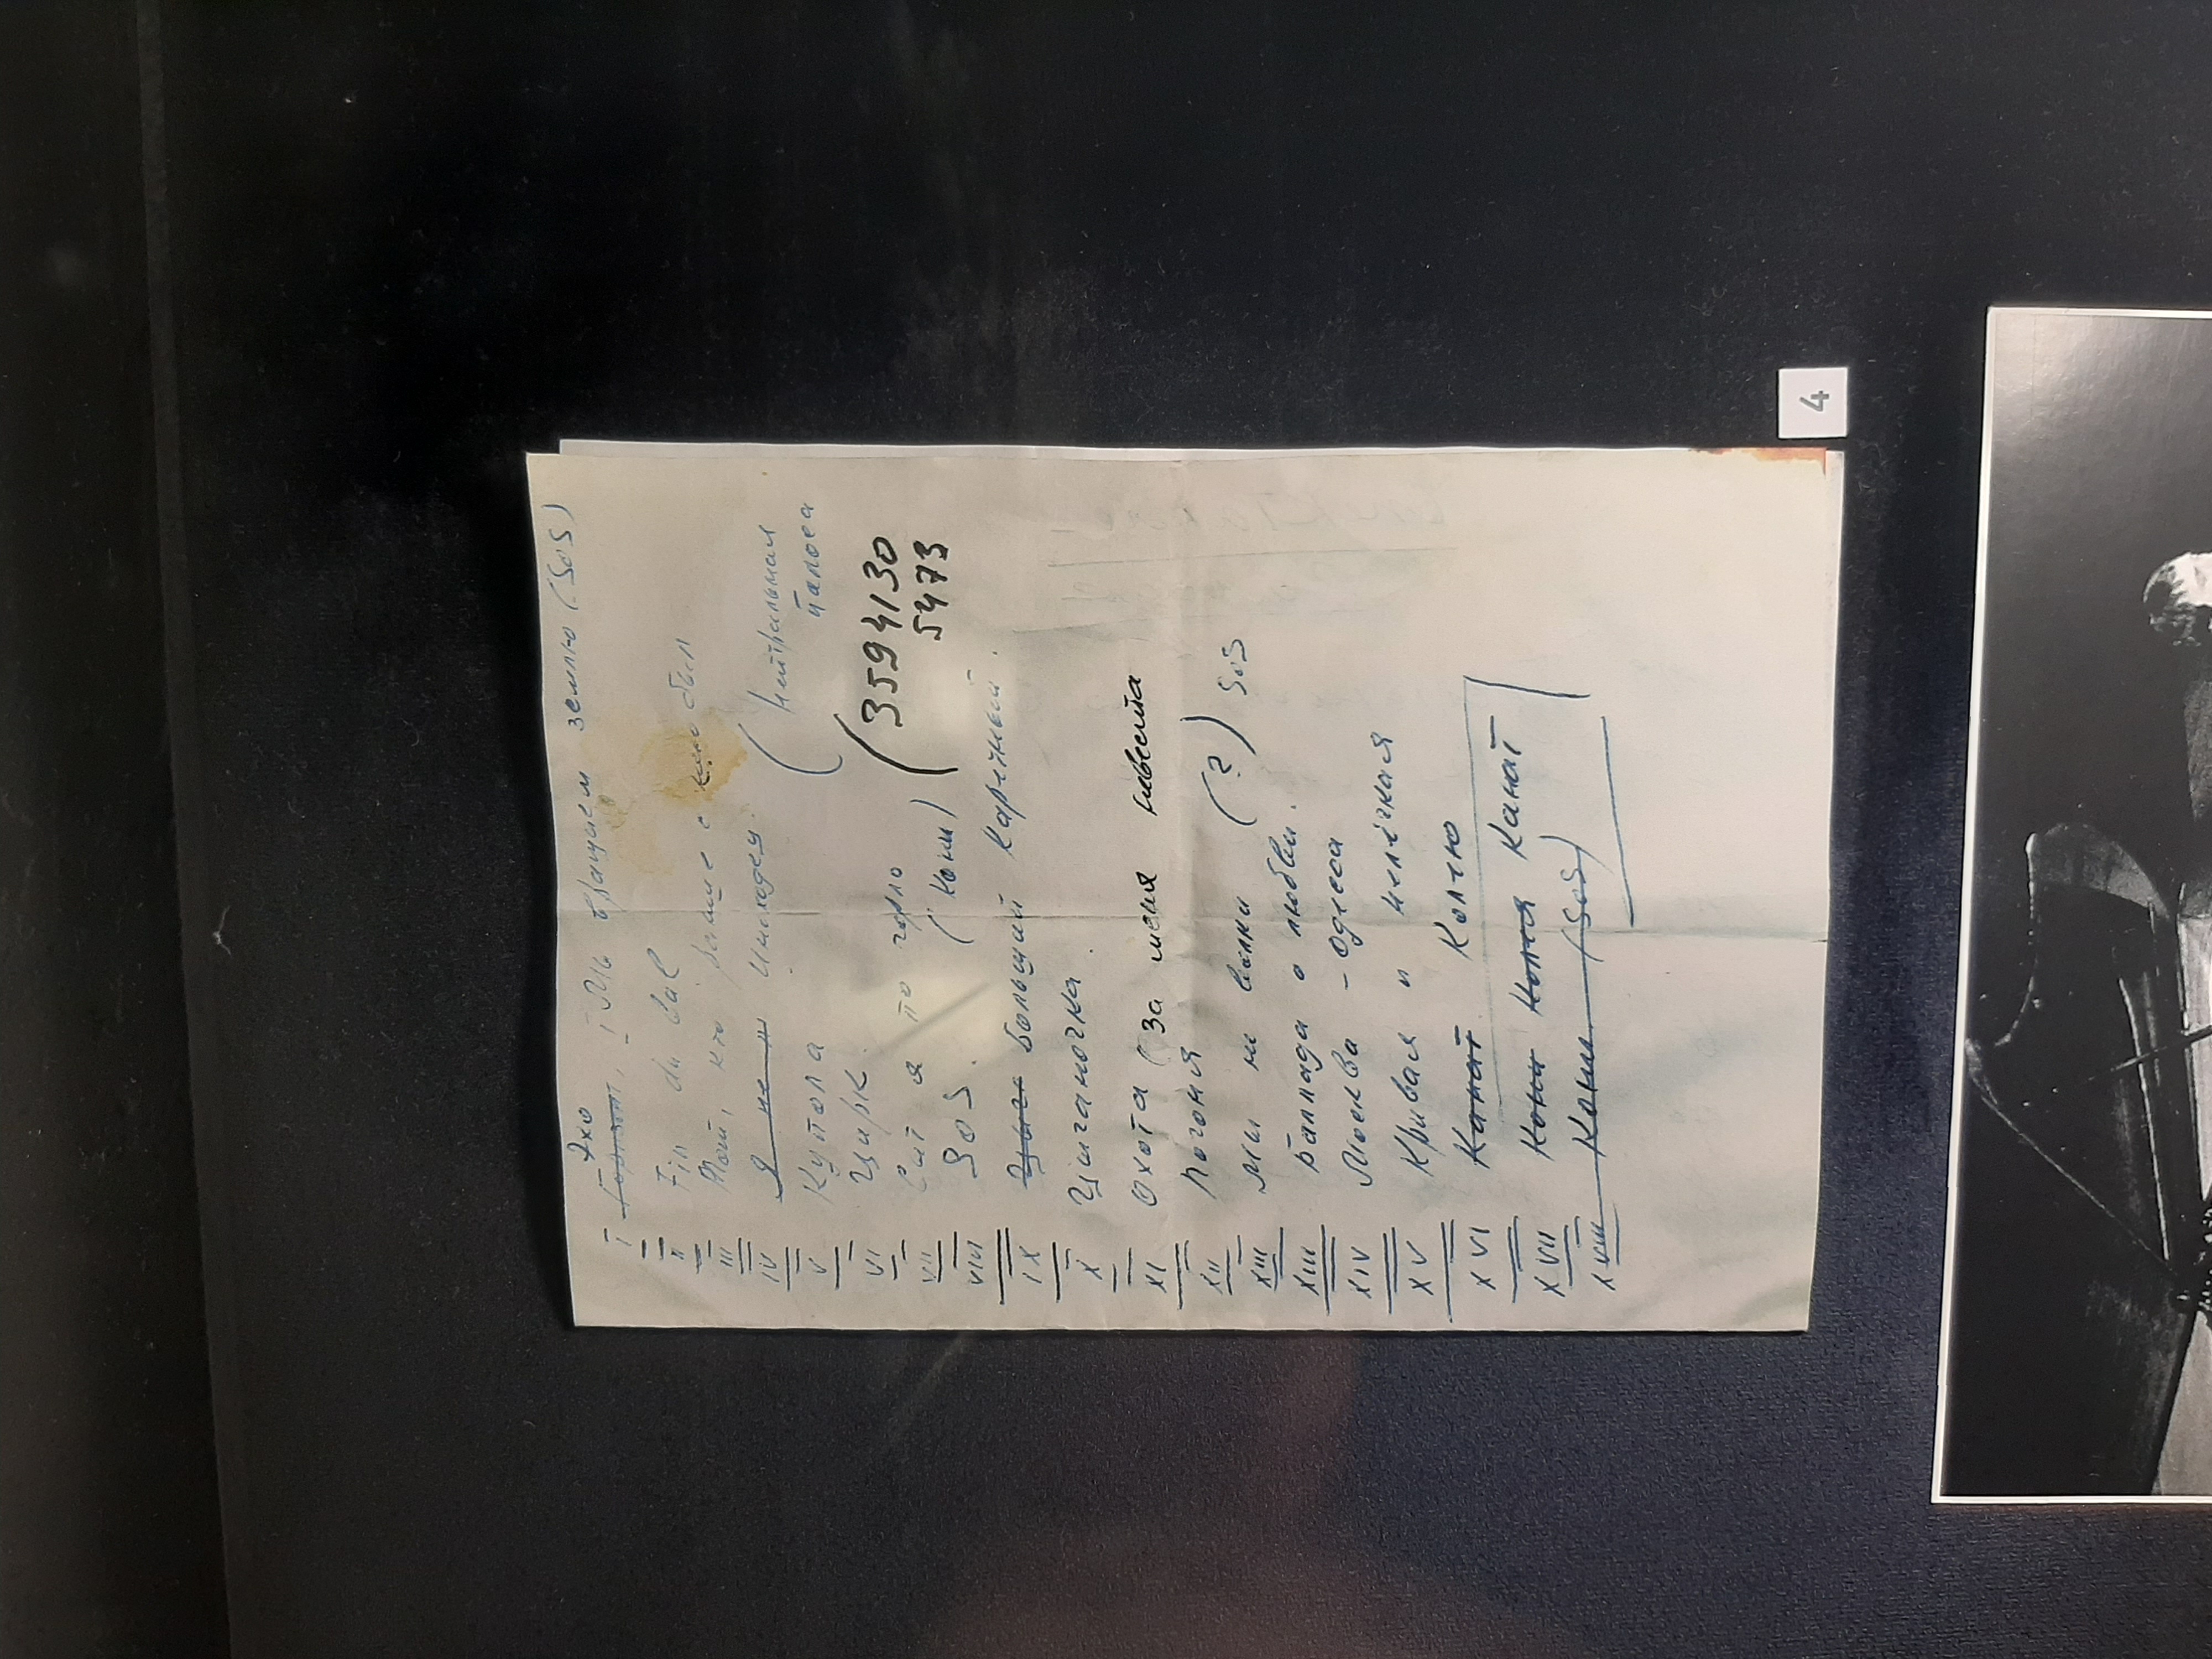 Эхо
I Горизонт, - Мы вращаем землю (SOS)
II Fin du bal
III Тот, кто раньше с нею был
IV Я не Иноходец
V Купола (Нейтральная полоса
VI Цирк. (3594130
VII Сыт я по горло 5473
VIII SOS. (Кони)
IX Большой Каретный.
X Цыганочка.
XI Охота (За меня невеста
XII Погоня
XIII Мы не волки (?) SOS
XIII Баллада о любви.
XIV Москва - Одесса
XV Кривая и Нелёгкая
XVI Канат Колею
XVII Кони Канат
XVIII Кони. (SOS)
4